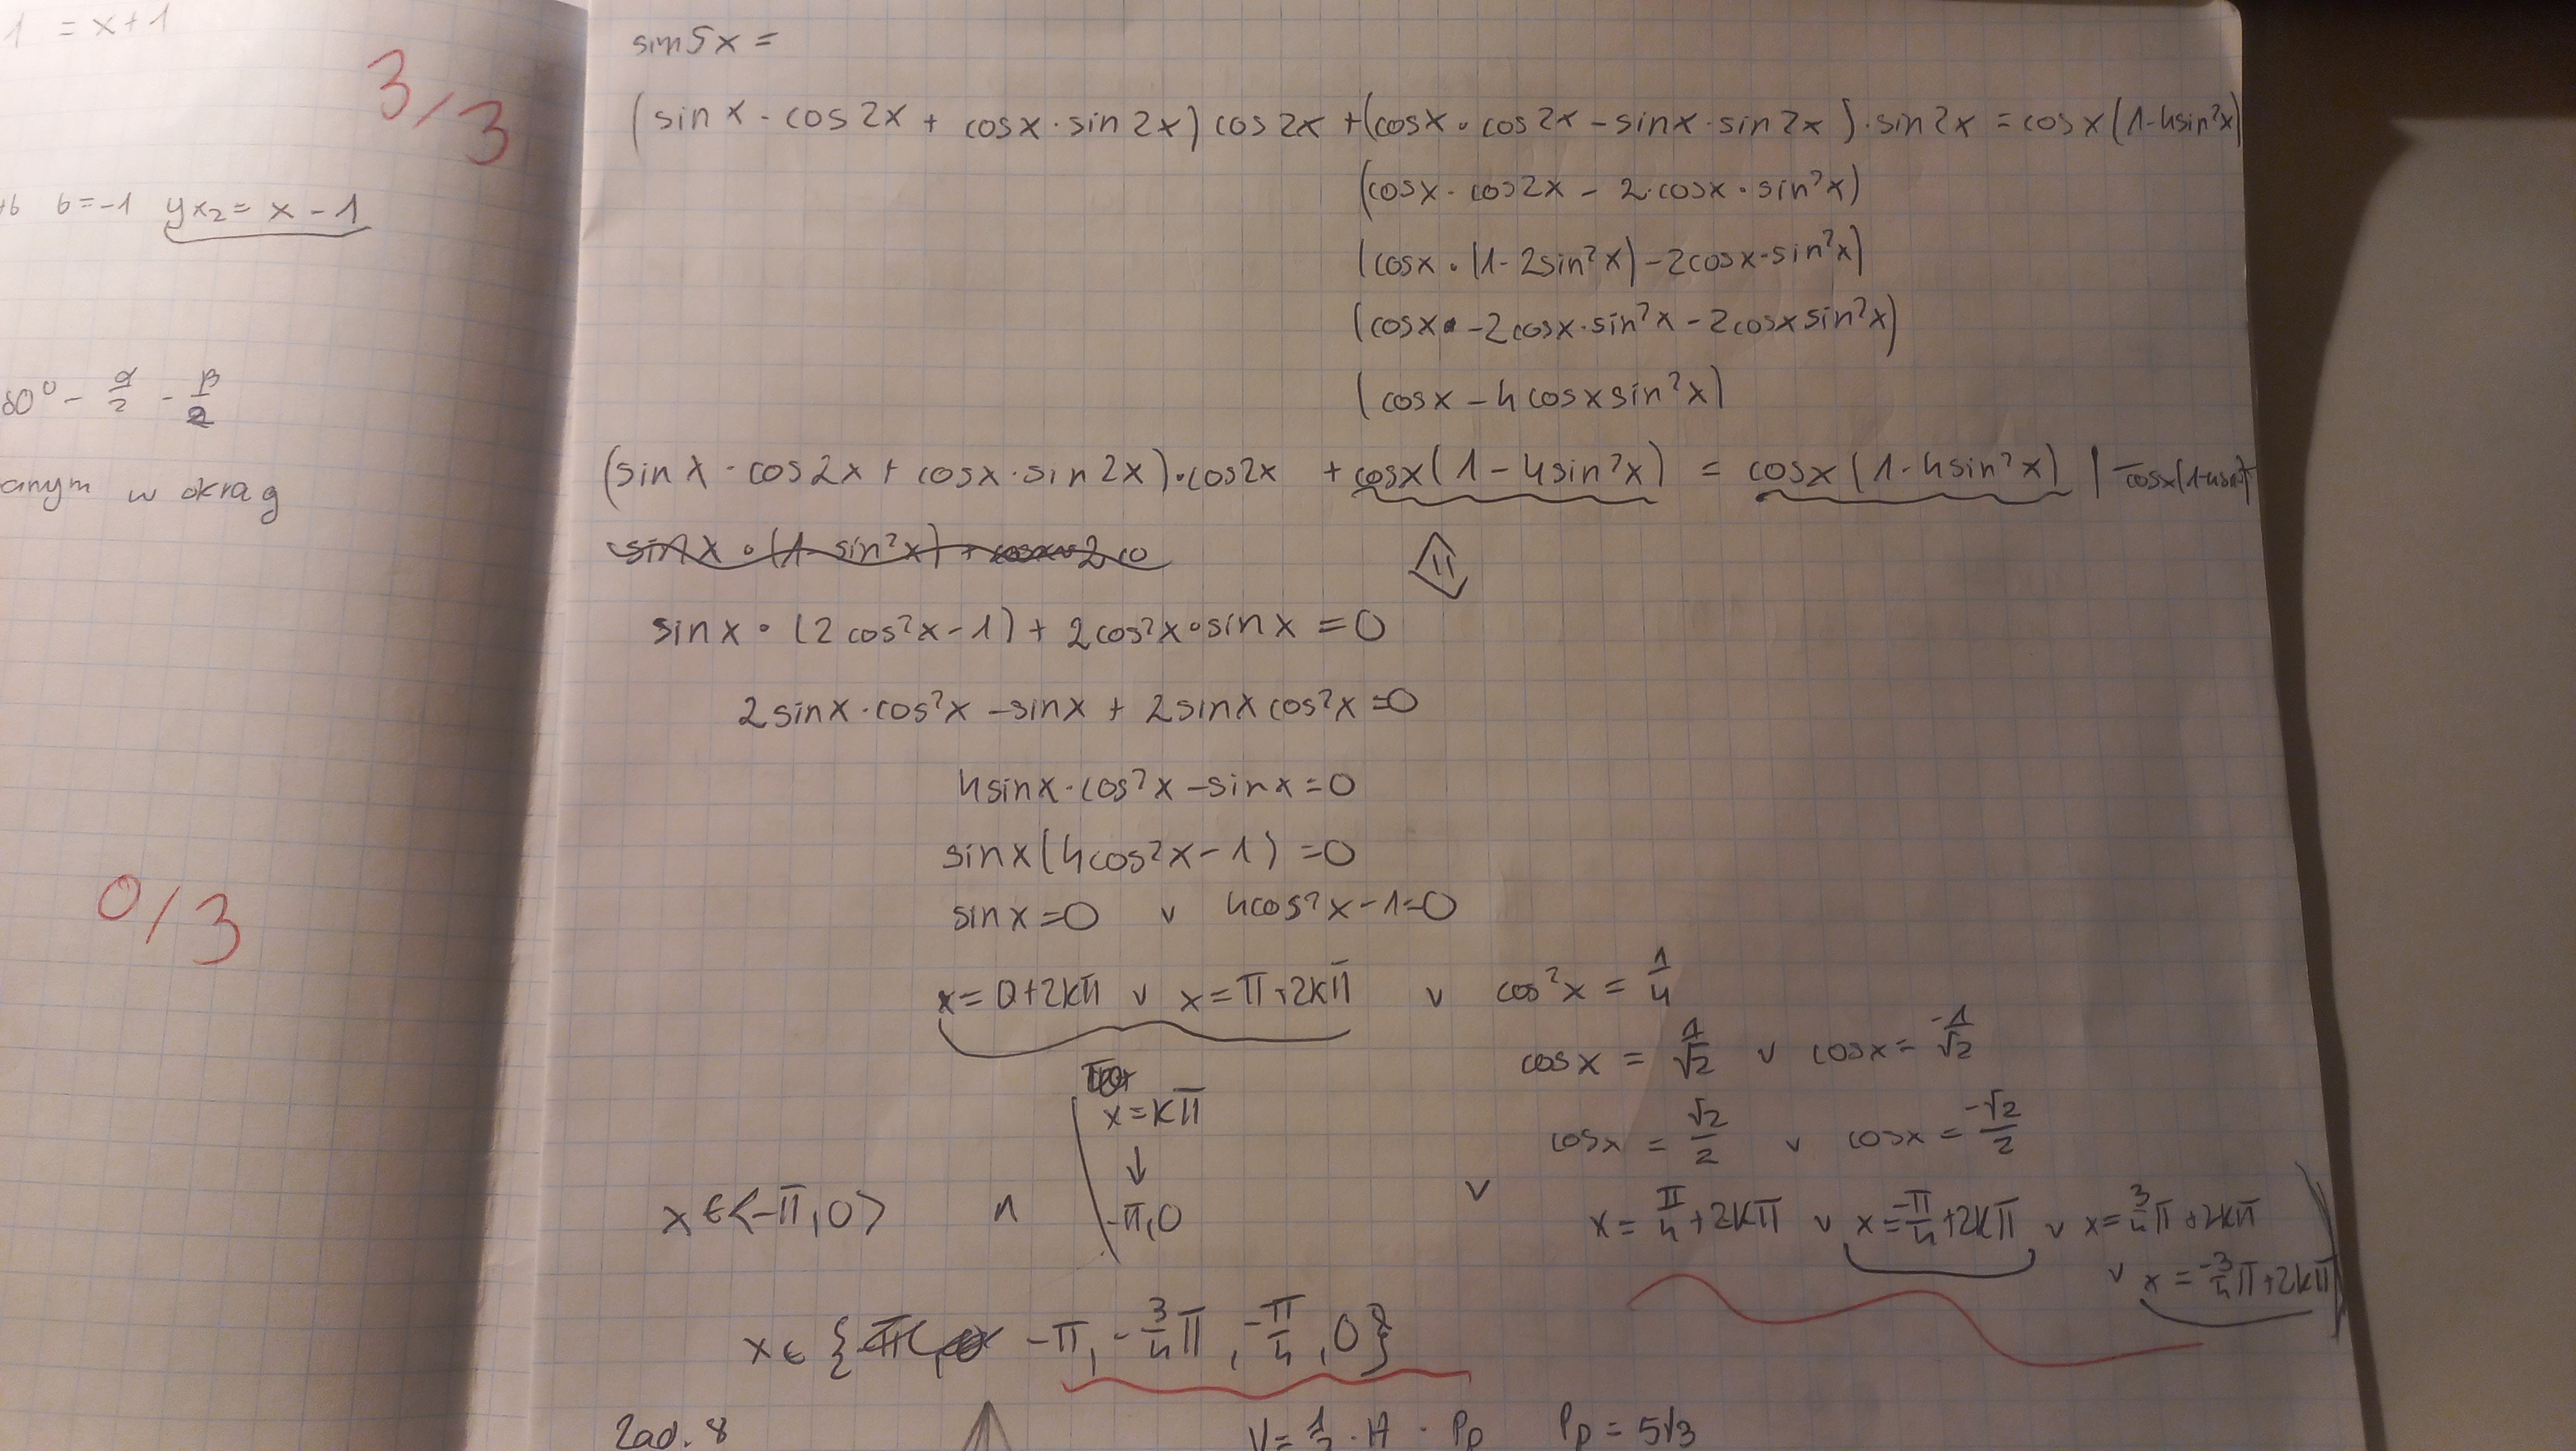 1 = x+1
3/3
b=-1 yx₂ = x - 1
60° - α/2 - β/2
anym w okrąg
0/3
sin5x =
(sinx · cos2x + cosx · sin2x) cos2x + (cosx · cos2x - sinx · sin2x) · sin2x = cosx(1-4sin²x)
(cosx · cos2x - 2·cosx · sin²x)
(cosx · (1-2sin²x) - 2cosx·sin²x)
(cosx - 2cosx·sin²x - 2cosxsin²x)
(cosx - 4cosxsin²x)
(sinx · cos2x + cosx · sin2x)·cos2x + cosx(1-4sin²x) = cosx(1-4sin²x) |
sinx · (1-sin²x) +
sinx · (2cos²x-1) + 2cos²x·sinx = 0
2sinx·cos²x - sinx + 2sinxcos²x = 0
4sinx·cos²x - sinx = 0
sinx(4cos²x-1) = 0
sinx = 0 v 4cos²x-1=0
x = 0+2kπ v x = π+2kπ v cos²x = 1/4
cosx = 1/√2 v cosx = -1/√2
x = kπ
↓
cosx = √2/2 v cosx = -√2/2
x ∈ <-π,0> ∧ -π,0 v x = π/4+2kπ v x = -π/4+2kπ v x = 3/4π+2kπ
v x = -3/4π+2kπ
x ∈ { -π, -3/4π, -π/4, 0}
Zad. 8 V = 1/3 · H · Pp Pp = 5√3